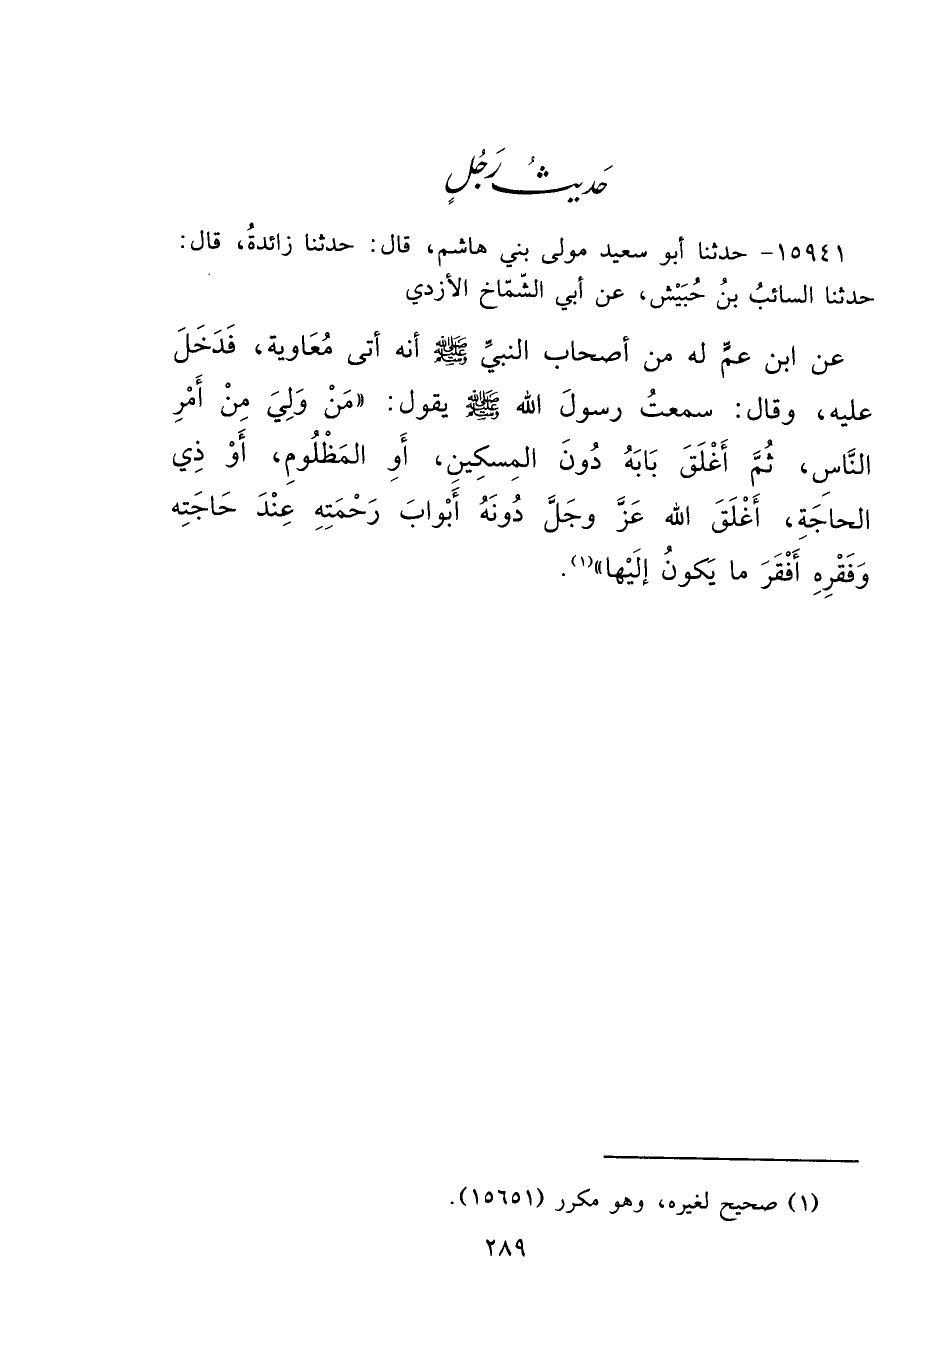 حَديثُ رَجُلٍ
١٥٩٤١- حدثنا أبو سعيد مولى بني هاشم، قال: حدثنا زائدةُ، قال:
حدثنا السائبُ بنُ حُبَيْش، عن أبي الشّمّاخ الأزدي
عن ابن عمٍّ له من أصحاب النبيِّ ﷺ أنه أتى مُعَاوية، فَدَخَلَ
عليه، وقال: سمعتُ رسولَ الله ﷺ يقول: «مَنْ وَلِيَ مِنْ أَمْرِ
النَّاسِ، ثُمَّ أَغْلَقَ بَابَهُ دُونَ المِسكِينِ، أَوِ المَظْلُومِ، أَوْ ذِي
الحاجَةِ، أَغْلَقَ الله عَزَّ وجَلَّ دُونَهُ أَبْوابَ رَحْمَتِهِ عِنْدَ حَاجَتِه
وَفَقْرِهِ أَفْقَرَ ما يَكونُ إلَيْها»(١).
(١) صحيح لغيره، وهو مكرر (١٥٦٥١).
٢٨٩